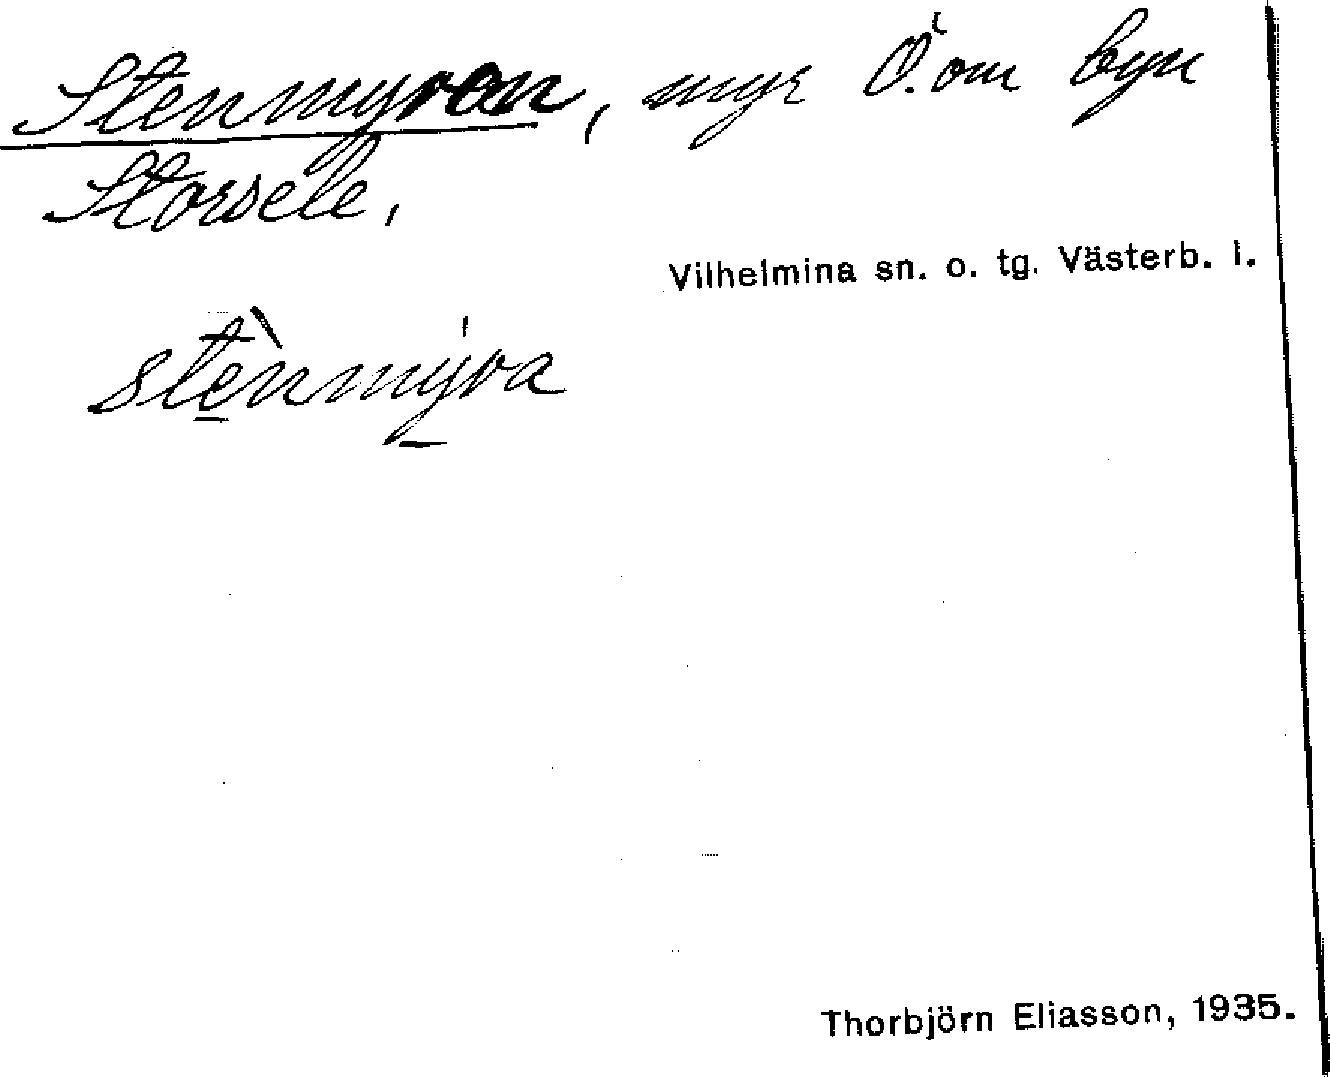 Stenmyran, myr Ö. om byn
Storsele,
Vilhelmina sn. o. tg. Västerb. l.
stènmýra
Thorbjörn Eliasson, 1935.